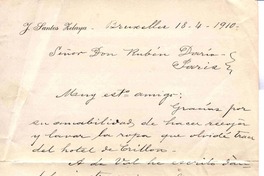 J. Santos Zelaya - Bruxelles 18-4-1910-
Señor Don Rubén Darío-
París
Muy esto amigo:
Gracias por
su amabilidad, de hacer recojer
y lavar la ropa que olvidé
del hotel de Crillon.
A de Val he escrito